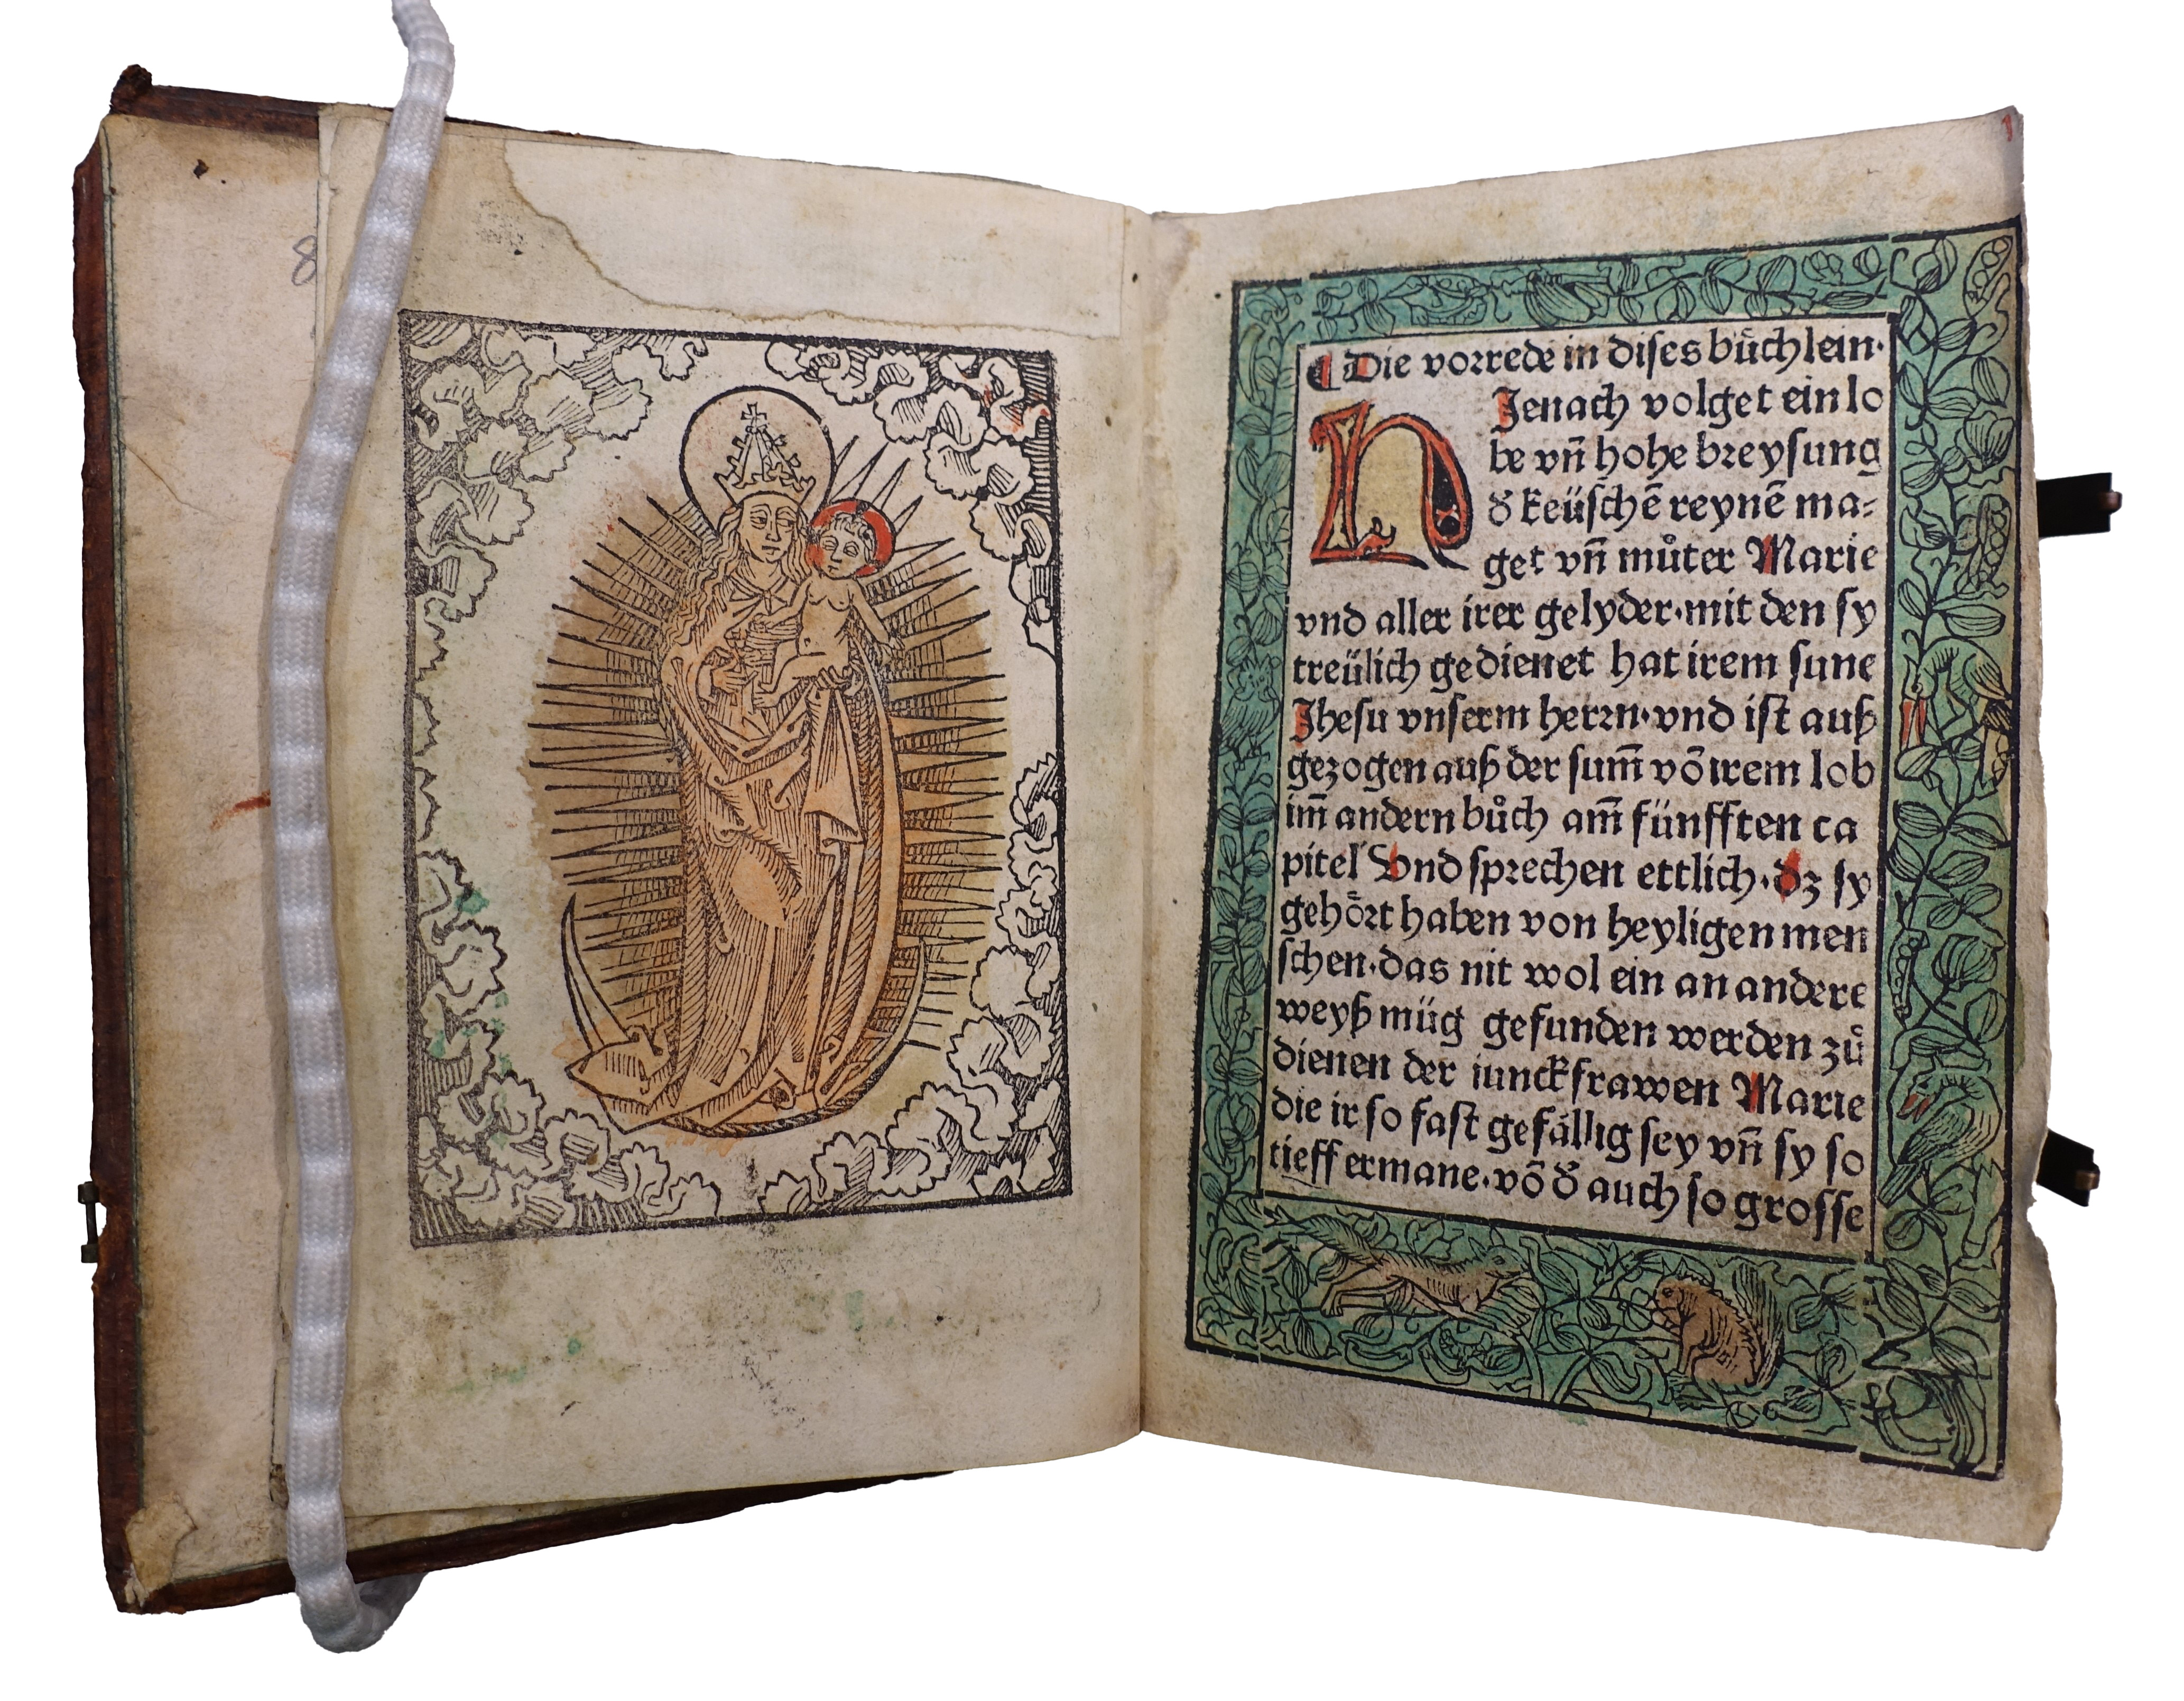 8
1
¶ Die vorrede in dises bůchlein·
HJenach volget ein lo
be vñ hohe breysung
d̕ keüschē reynē ma-
get vñ můter Marie
vnd aller irer gelyder·mit den sy
treülich gedienet hat irem sune
Jhesu vnserm herrn·vnd ist auß
gezogen auß der sum̄ vō irem lob
im̄ andern bůch am̄ fünfften ca
pitel Vnd sprechen ettlich·dz sy
gehoͤrt haben von heyligen men
schen·das nit wol ein an andere
weyß müg gefunden werden zů
dienen der iunckfrawen Marie
die ir so fast gefaͤllig sey vñ sy so
tieff ermane·vō d̕ auch so grosse